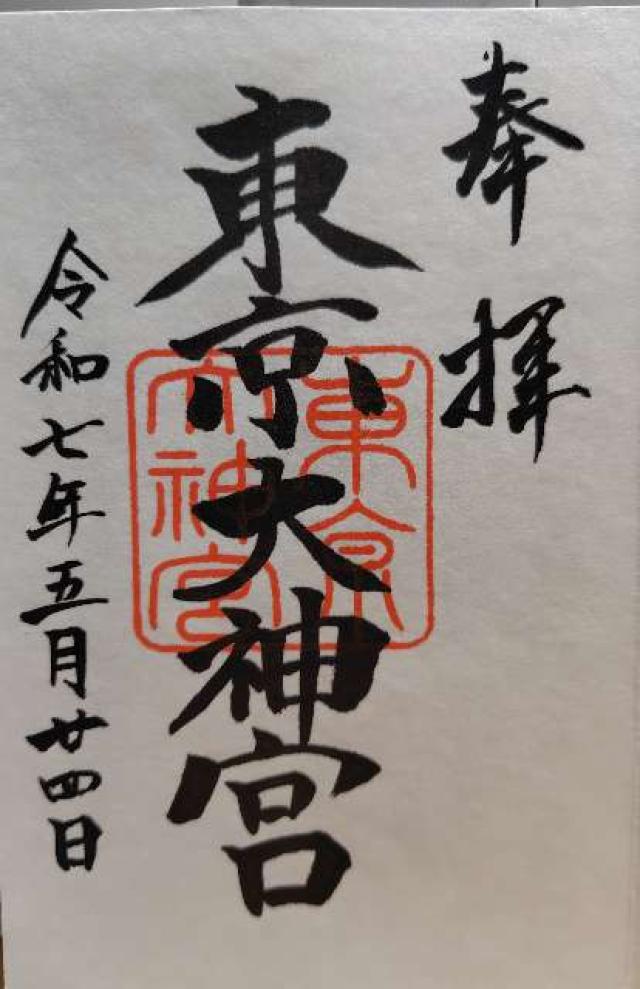 奉拝
東京大神宮
東京
大神宮
令和七年五月廿四日